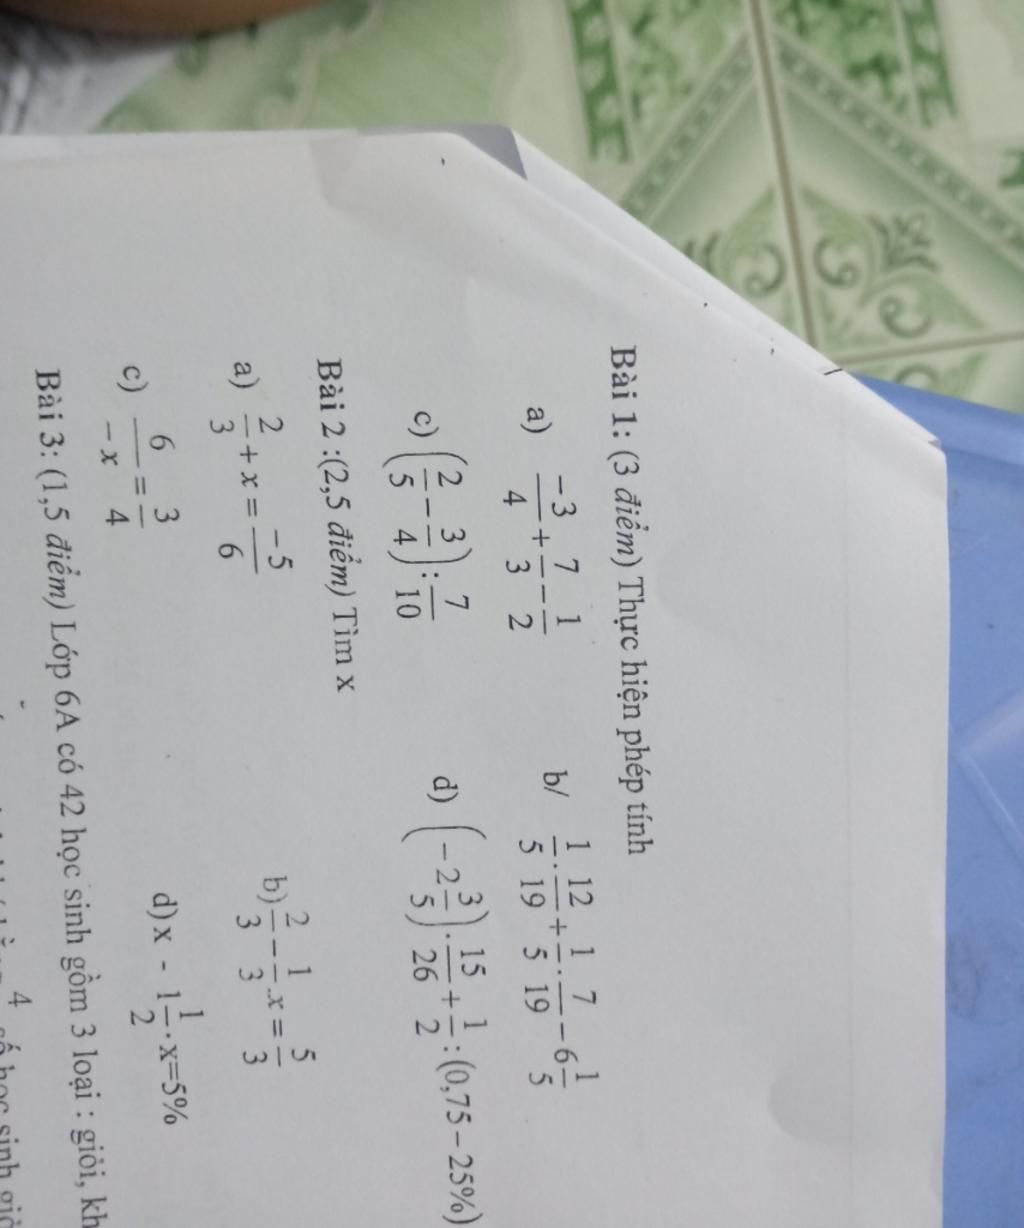 Bài 1: (3 điểm) Thực hiện phép tính
a) -3/4 + 7/3 - 1/2 b/ 1/5 . 12/19 + 1/5 . 7/19 - 6 1/5
c) (2/5 - 3/4) : 7/10 d) (-2 3/5) . 15/26 + 1/2 : (0,75 - 25%)
Bài 2 :(2,5 điểm) Tìm x
a) 2/3 + x = -5/6 b) 2/3 - 1/3 .x = 5/3
c) 6/-x = 3/4 d)x - 1 1/2 . x=5%
Bài 3: (1,5 điểm) Lớp 6A có 42 học sinh gồm 3 loại : giỏi,
4 học sinh